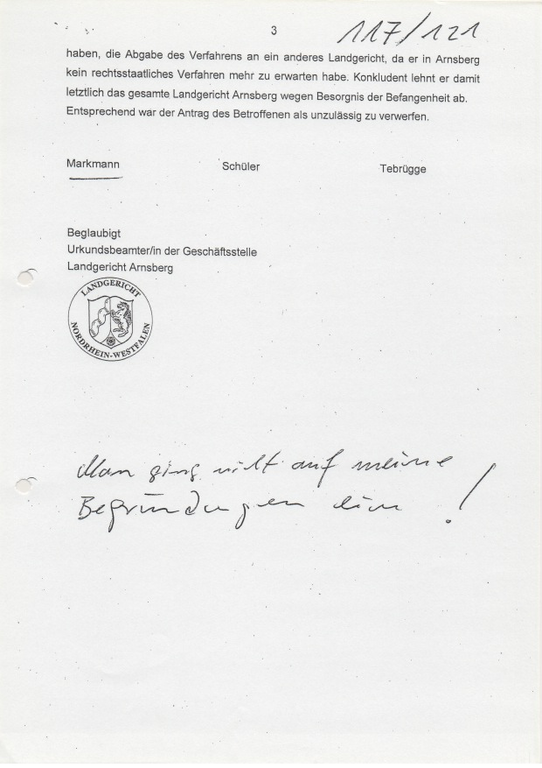 3
117/121
haben, die Abgabe des Verfahrens an ein anderes Landgericht, da er in Arnsberg
kein rechtsstaatliches Verfahren mehr zu erwarten habe. Konkludent lehnt er damit
letztlich das gesamte Landgericht Arnsberg wegen Besorgnis der Befangenheit ab.
Entsprechend war der Antrag des Betroffenen als unzulässig zu verwerfen.
Markmann Schüler Tebrügge
Beglaubigt
Urkundsbeamter/in der Geschäftsstelle
Landgericht Arnsberg
LANDGERICHT
NORDRHEIN-WESTFALEN
Man ging nicht auf meine
Begründungen ein !